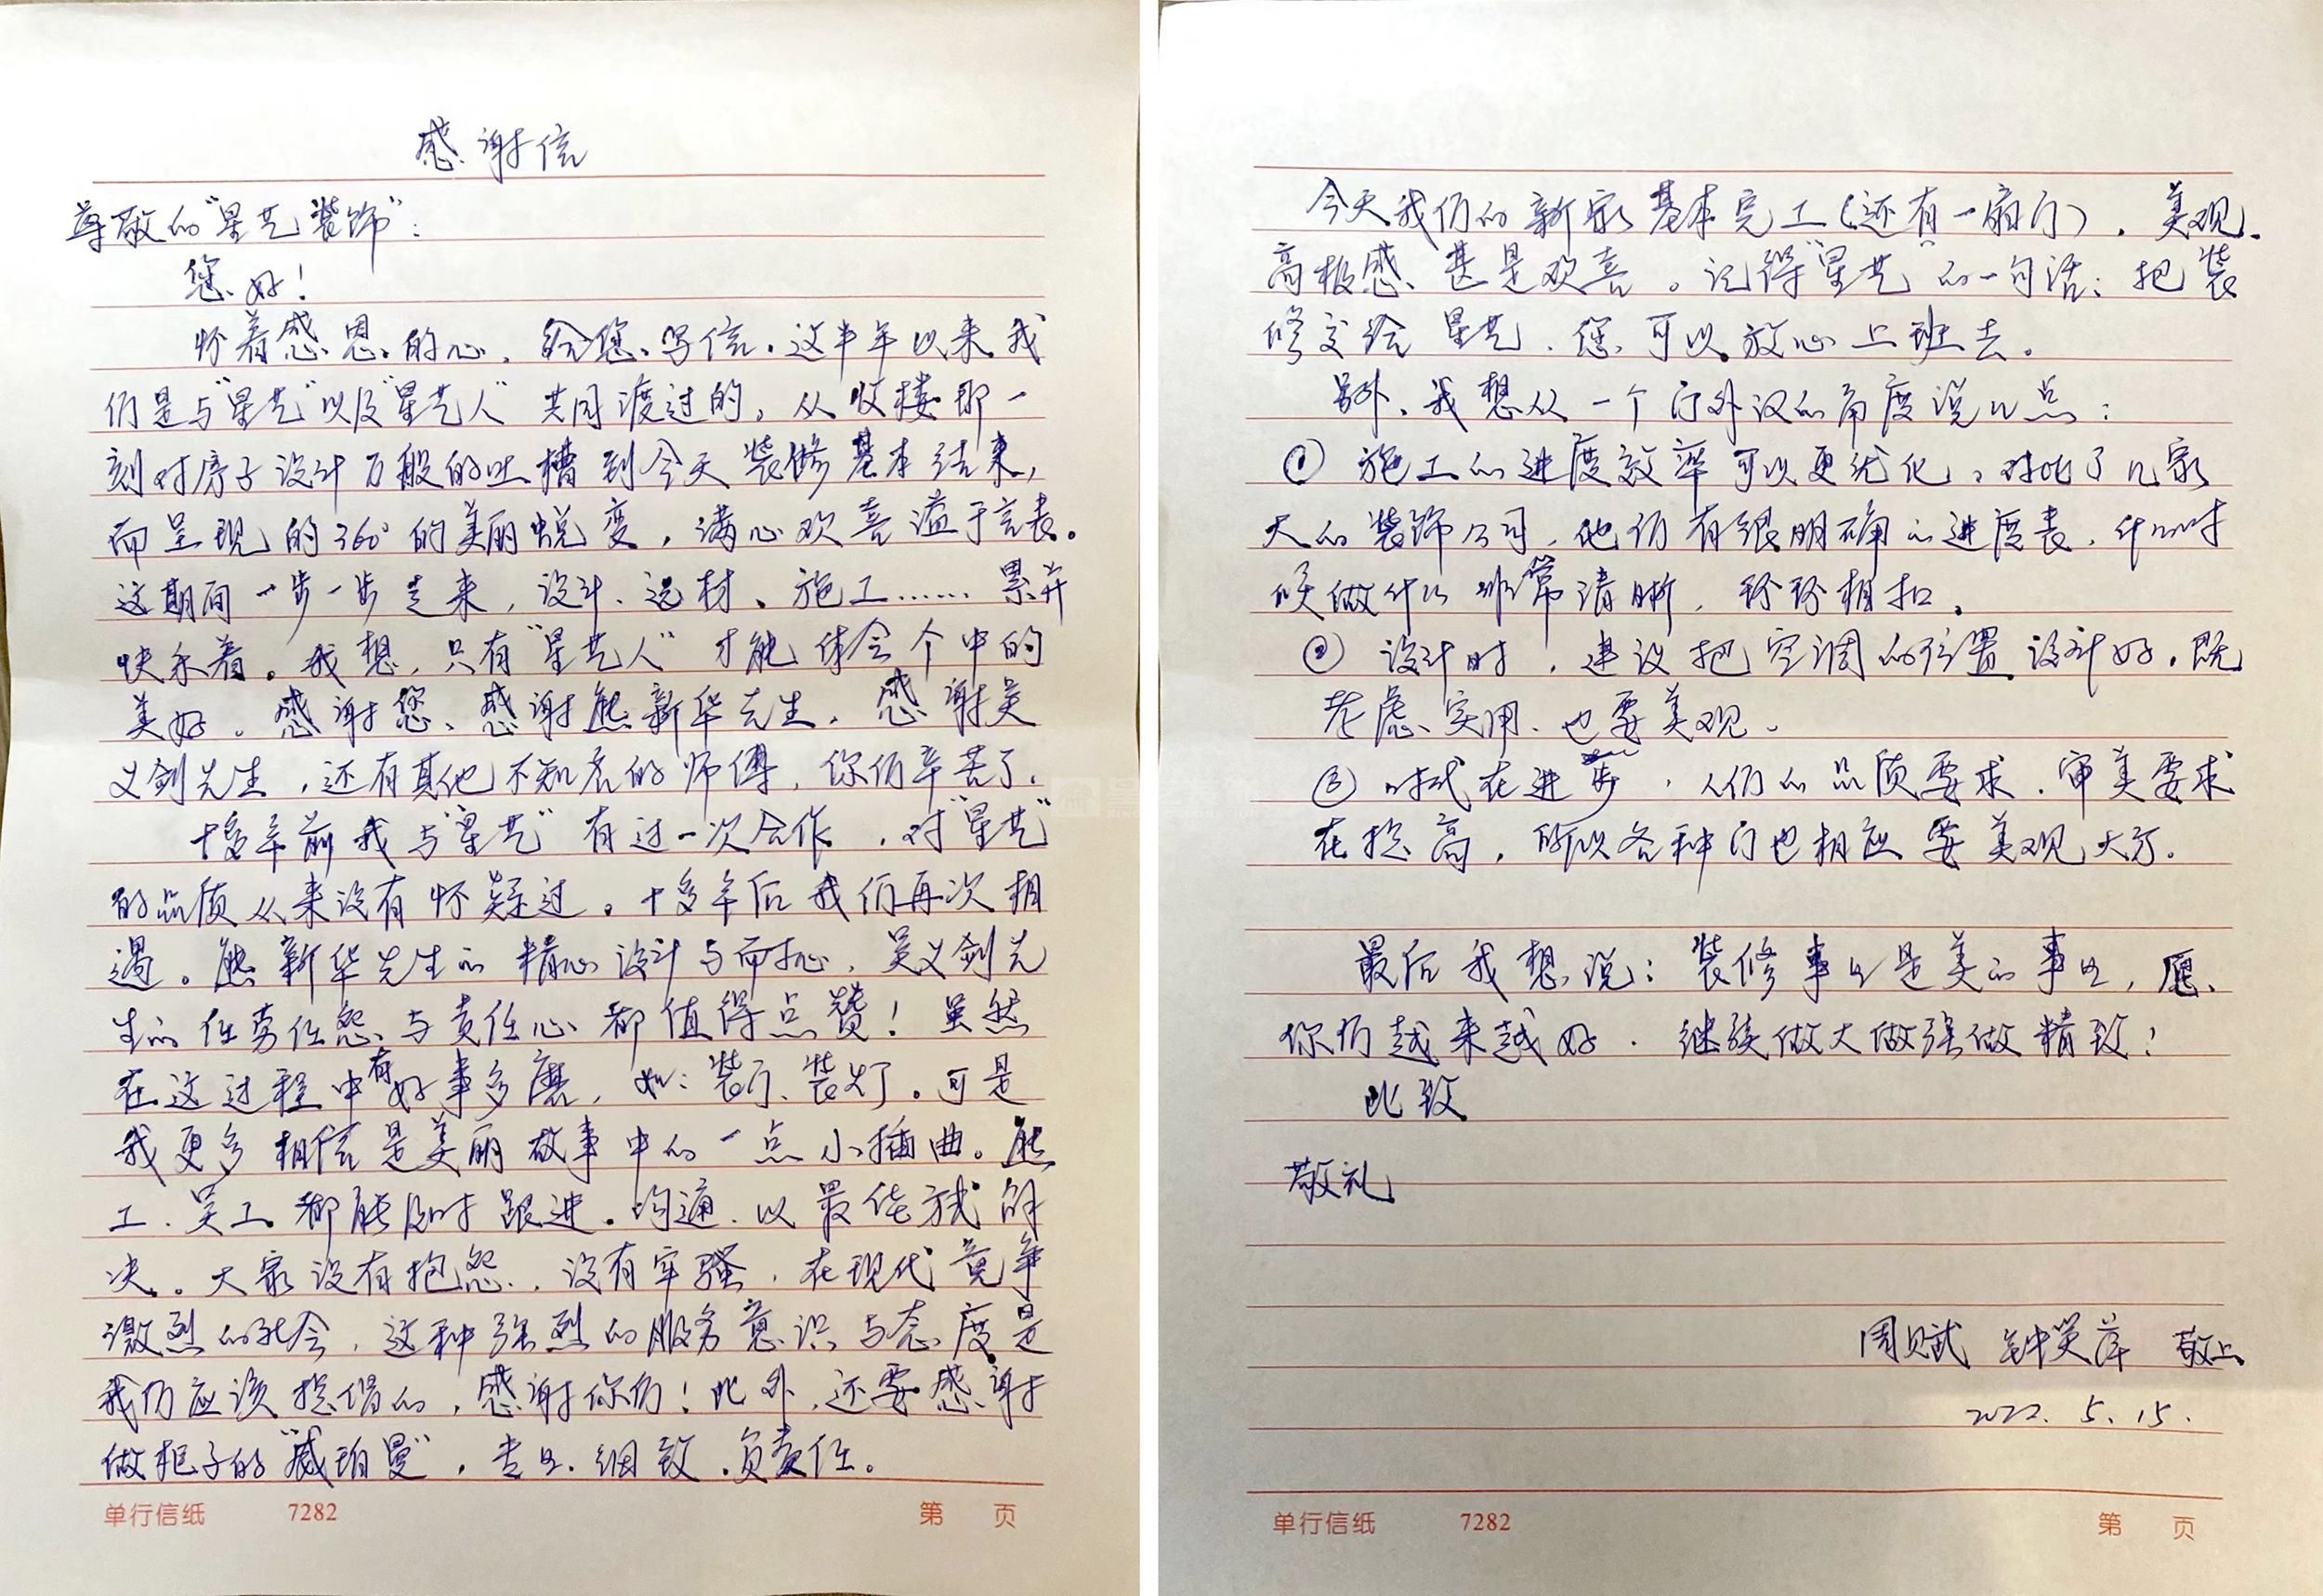 感谢信
尊敬的“星艺装饰”：
您好！
怀着感恩的心，给您写信。这半年以来我
们是与“星艺”以及“星艺人”共同渡过的。从收楼那一
刻对房子设计万般的吐槽到今天装修基本结束，
而呈现的360°的美丽蜕变，满心欢喜溢于言表。
这期间一步一步走来，设计、选材、施工……累并
快乐着。我想，只有“星艺人”才能体会个中的
美好。感谢您、感谢熊新华先生，感谢吴
义剑先生，还有其他不知名的师傅，你们辛苦了。
十多年前我与“星艺”有过一次合作，对“星艺”
的品质从来没有怀疑过。十多年后我们再次相
遇。熊新华先生的精心设计与耐心，吴义剑先
生的任劳任怨、与责任心都值得点赞！虽然
在这过程中有好事多磨，如：装门、装灯。可是
我更多相信是美丽故事中的一点小插曲。熊
工、吴工都能及时跟进。沟通、以最佳方式解
决。大家没有抱怨、没有牢骚，在现代竞争
激烈的社会，这种强烈的服务意识与态度是
我们应该提倡的，感谢你们！此外，还要感谢
做柜子的“威珀曼”，专业、细致、负责任。
单行信纸 7282 第 页
今天我们的新家基本完工（还有一扇门），美观、
高极感、甚是欢喜。记得“星艺”的一句话：把装
修交给星艺，您可以放心上班去。
另外，我想从一个门外汉的角度说几点：
① 施工的进度效率可以更优化，对比了几家
大的装饰公司，他们有很明确的进度表，什么时
候做什么非常清晰，环环相扣。
② 设计时，建议把空调的位置设计好，既
考虑实用、也要美观。
③ 时代在进步，人们的品质要求、审美要求
在提高，所以各种门也相应要美观大方。
最后我想说：装修事业是美的事业，愿
你们越来越好，继续做大做强做精致！
此致
敬礼
周贝斌 钟笑萍 敬上
2022.5.15.
单行信纸 7282 第 页